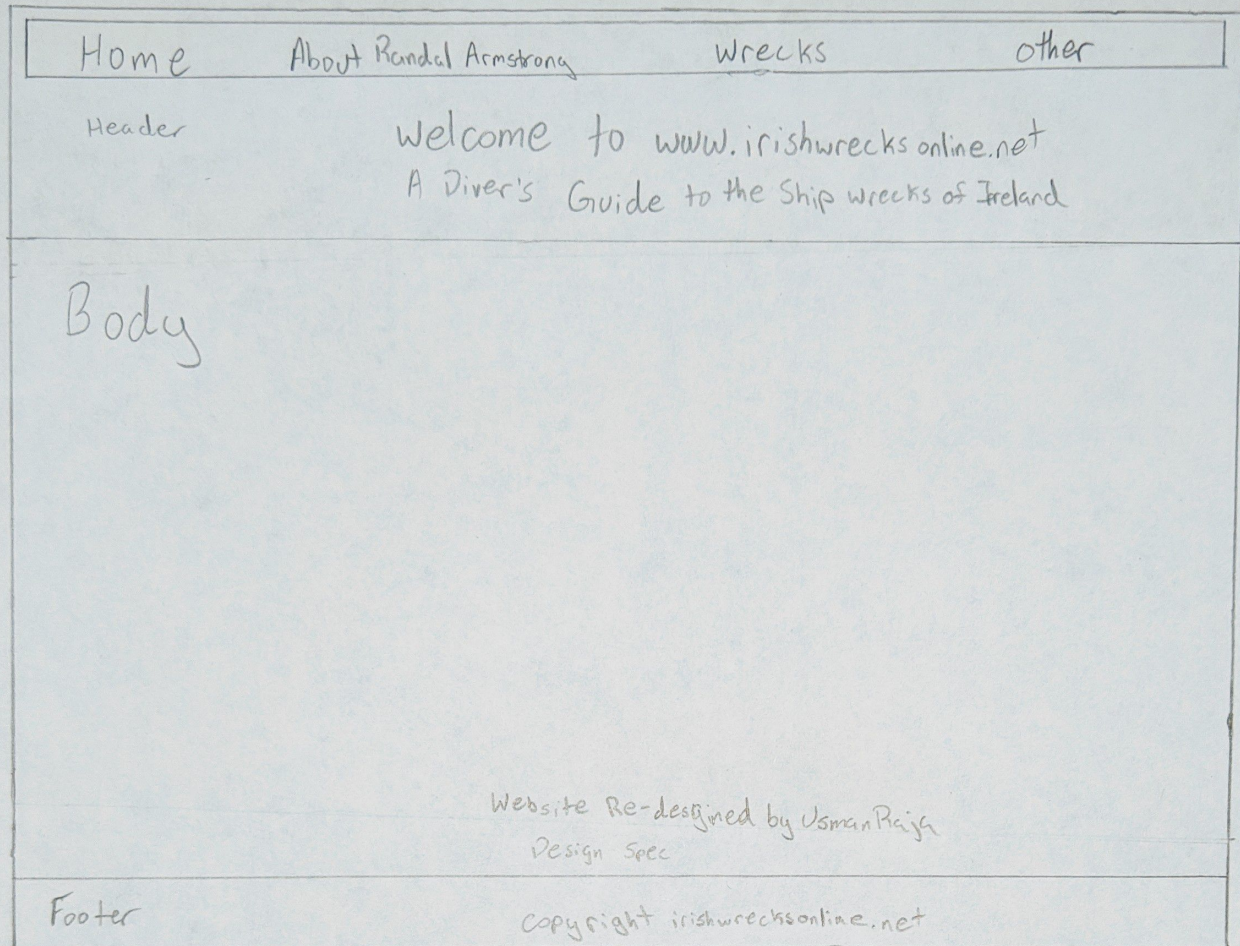 Home About Randal Armstrong Wrecks other
Header
Welcome to www.irishwrecksonline.net
A Diver's Guide to the Ship wrecks of Ireland
Body
Website Re-desgined by Usman Raja
Design Spec
Footer
Copyright irishwrecksonline.net